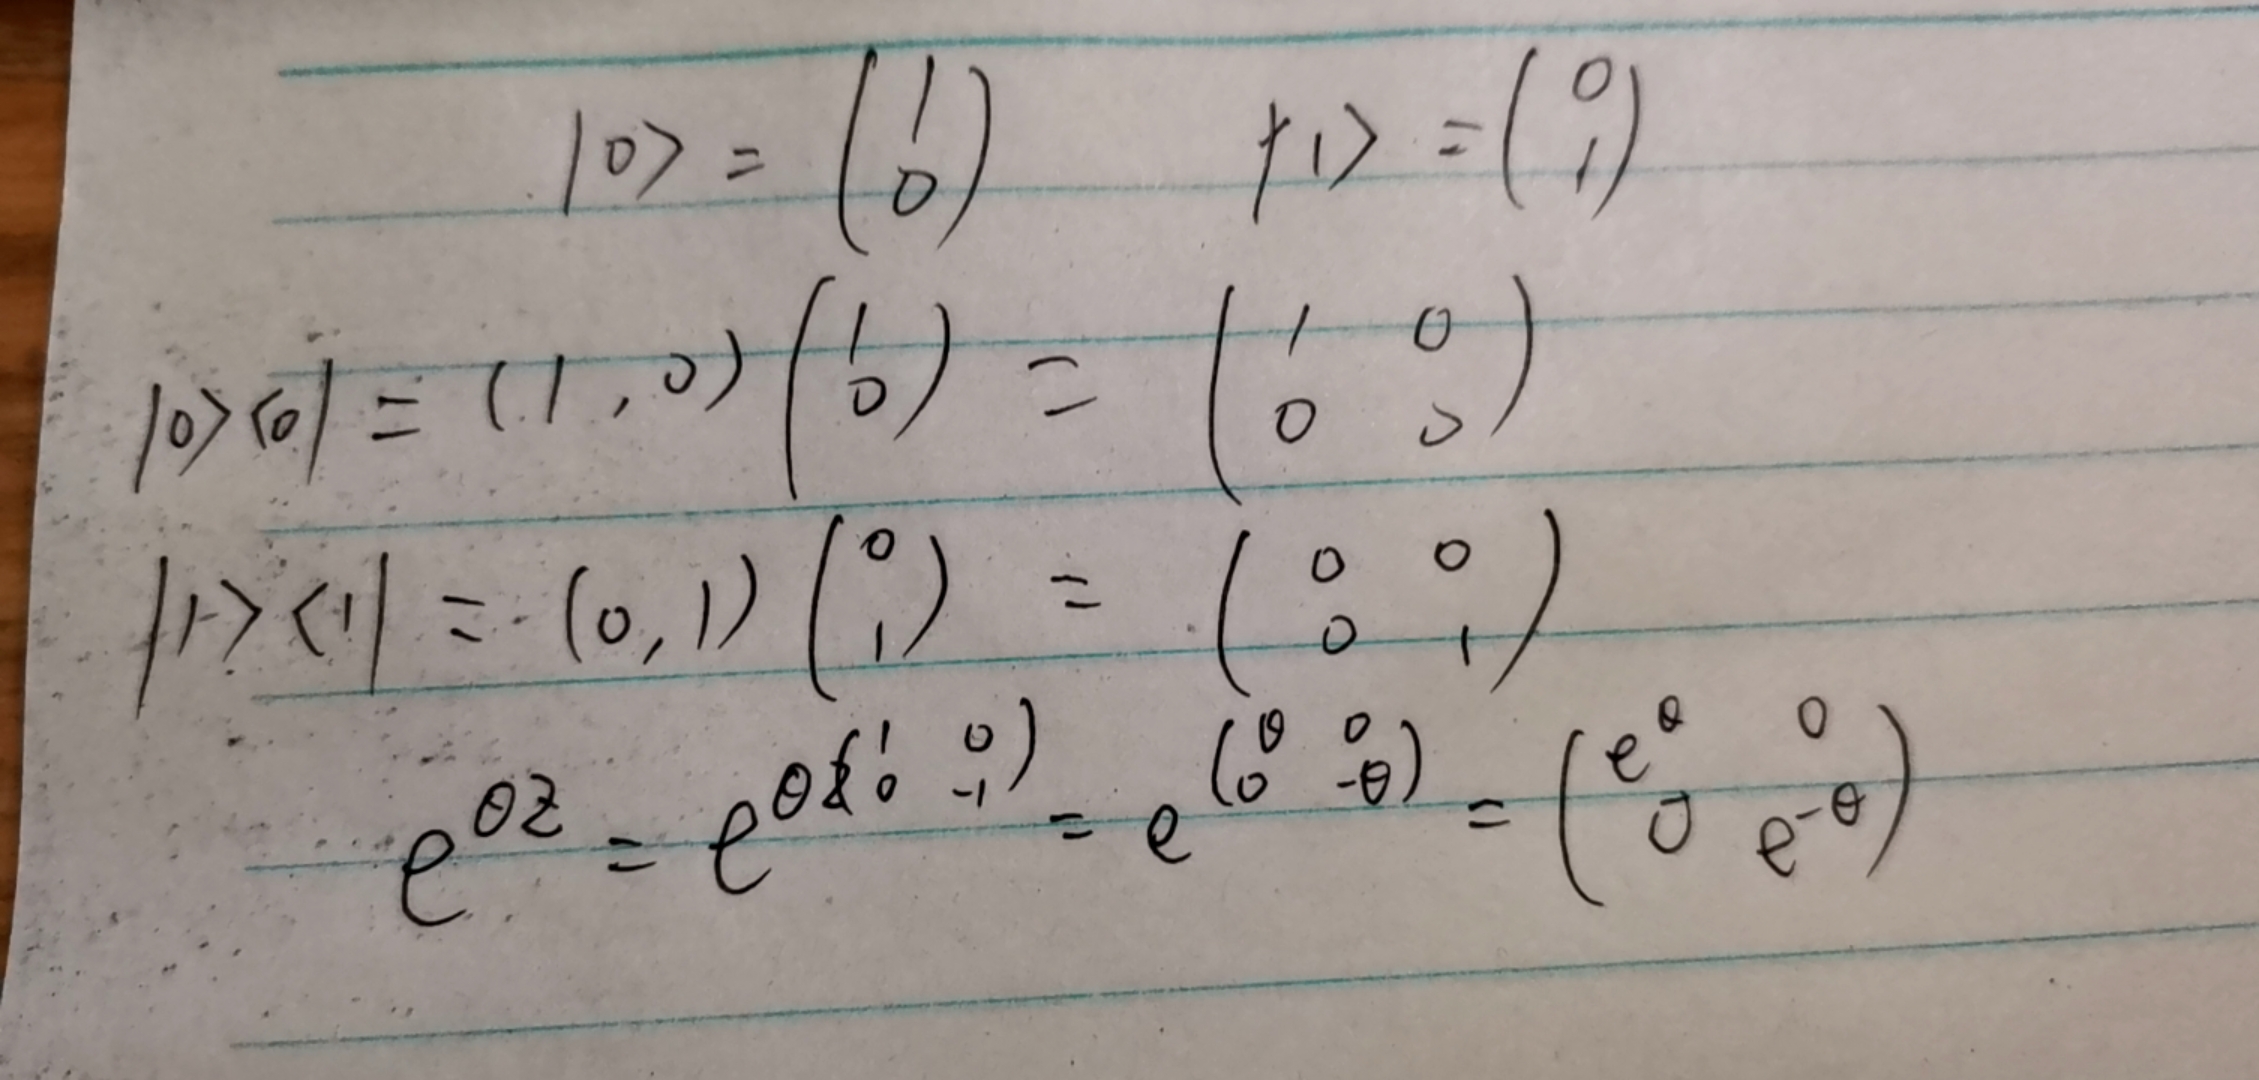 |0> = (1 0) |1> = (0 1)
|0><0| = (1, 0) (1 0) = (1 0 0 0)
|1><1| = (0, 1) (0 1) = (0 0 0 1)
e^θZ = e^θ(1 0 0 -1) = e^(θ 0 0 -θ) = (e^θ 0 0 e^-θ)